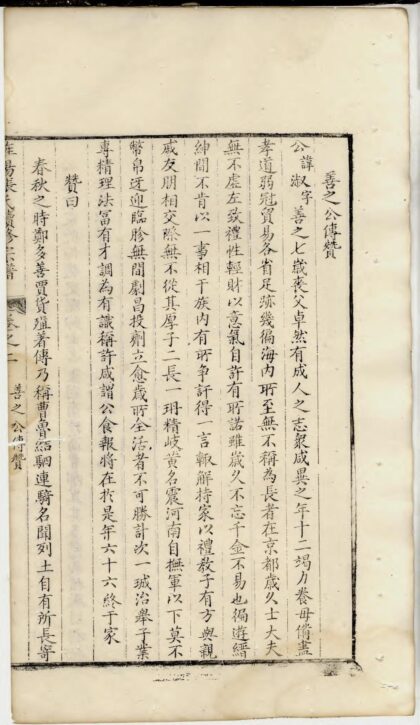 善之公傳贊
公諱淑字善之七歲喪父卓然有成人之志眾咸異之年十二竭力養母備盡
孝道弱冠貿易各省足跡幾偏海内所至無不稱為長者在京都歲久士大夫
無不虛左致禮性輕財以意氣自許有所諾雖歲久不忘千金不易也徧遊縉
紳間不肯以一事相干族内有所争訐得一言輙解持家以禮教子有方與親
戚友朋相交際無不從其厚子二長一珊精岐黄名震河南自撫軍以下莫不
幣帛迓迎臨胗無間劇昌投劑立愈歲所全活者不可勝計次一珹治舉子業
專精理法富有才調為有識稱許咸謂公食報將在於是年六十六終于家
贊曰
春秋之時鄭多善賈貨殖著傳乃稱曹魯結駟連騎名聞列土自有所長寄
張氏續修宗譜
卷之二
善之公傳贊